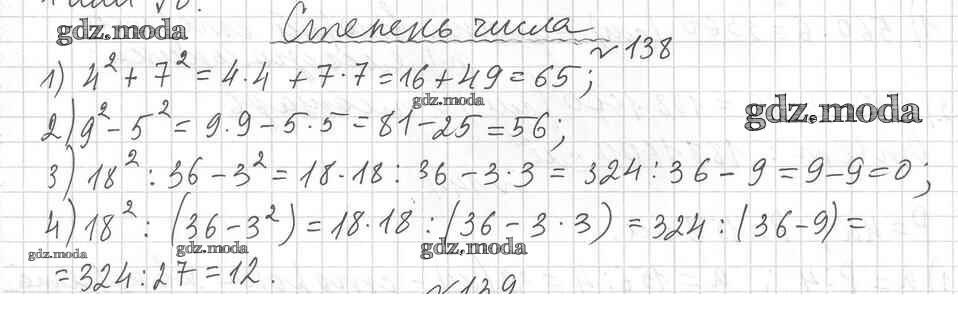 gdz.moda
Степень числа
№138
1) 4² + 7² = 4·4 + 7·7 = 16 + 49 = 65;
gdz.moda
gdz.moda
2) 9² - 5² = 9·9 - 5·5 = 81 - 25 = 56;
3) 18² : 36 - 3² = 18·18 : 36 - 3·3 = 324 : 36 - 9 = 9 - 9 = 0;
4) 18² : (36 - 3²) = 18·18 : (36 - 3·3) = 324 : (36 - 9) =
gdz.moda gdz.moda gdz.moda
= 324 : 27 = 12.
№139